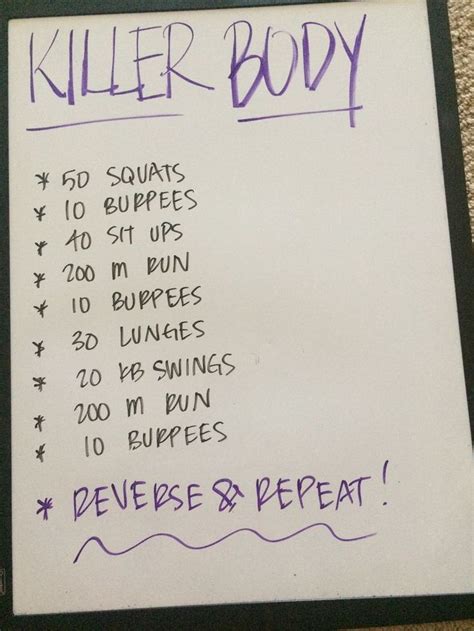 KILLER BODY
* 50 SQUATS
* 10 BURPEES
* 40 SIT UPS
* 200 M RUN
* 10 BURPEES
* 30 LUNGES
* 20 KB SWINGS
* 200 M RUN
* 10 BURPEES
* REVERSE & REPEAT!